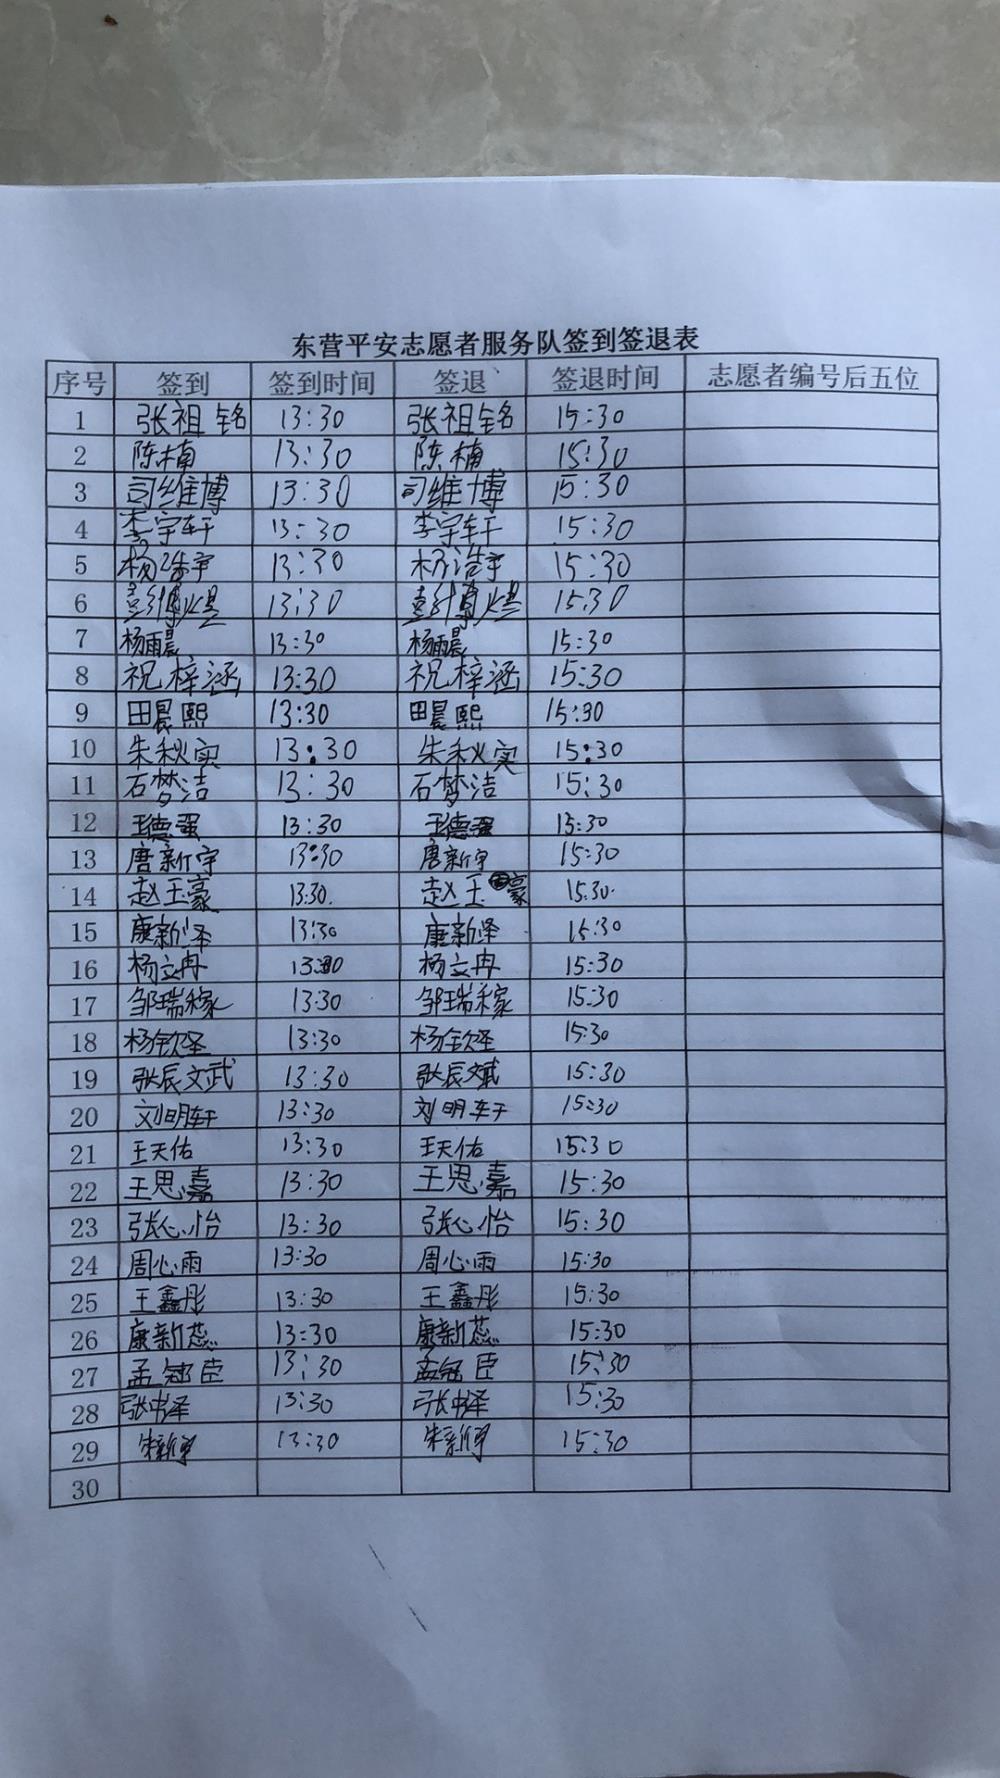 东营平安志愿者服务队签到签退表
序号 签到 签到时间 签退 签退时间 志愿者编号后五位
1 张祖铭 13:30 张祖铭 15:30
2 陈楠 13:30 陈楠 15:30
3 司维博 13:30 司维博 15:30
4 李宇轩 13:30 李宇轩 15:30
5 杨浩宇 13:30 杨浩宇 15:30
6 13:30 15:30
7 杨雨晨 13:30 杨雨晨 15:30
8 祝梓涵 13:30 祝梓涵 15:30
9 田晨熙 13:30 田晨熙 15:30
10 朱秋实 13:30 朱秋实 15:30
11 石梦洁 13:30 石梦洁 15:30
12 王德强 13:30 王德强 15:30
13 唐新宇 13:30 唐新宇 15:30
14 赵玉豪 13:30. 赵玉豪 15:30.
15 康新泽 13:30 康新泽 15:30
16 杨立冉 13:30 杨立冉 15:30
17 邹瑞稼 13:30 邹瑞稼 15:30
18 13:30 15:30
19 张辰文武 13:30 张辰文斌 15:30
20 刘明轩 13:30 刘明轩 15:30
21 王天佑 13:30 王天佑 15:30
22 王思嘉 13:30 王思嘉 15:30
23 张心怡 13:30 张心怡 15:30
24 周心雨 13:30 周心雨 15:30
25 王鑫彤 13:30 王鑫彤 15:30
26 康新蕊 13:30 康新蕊 15:30
27 孟冠臣 13:30 孟冠臣 15:30
28 张书泽 13:30 张书泽 15:30
29 13:30 15:30
30